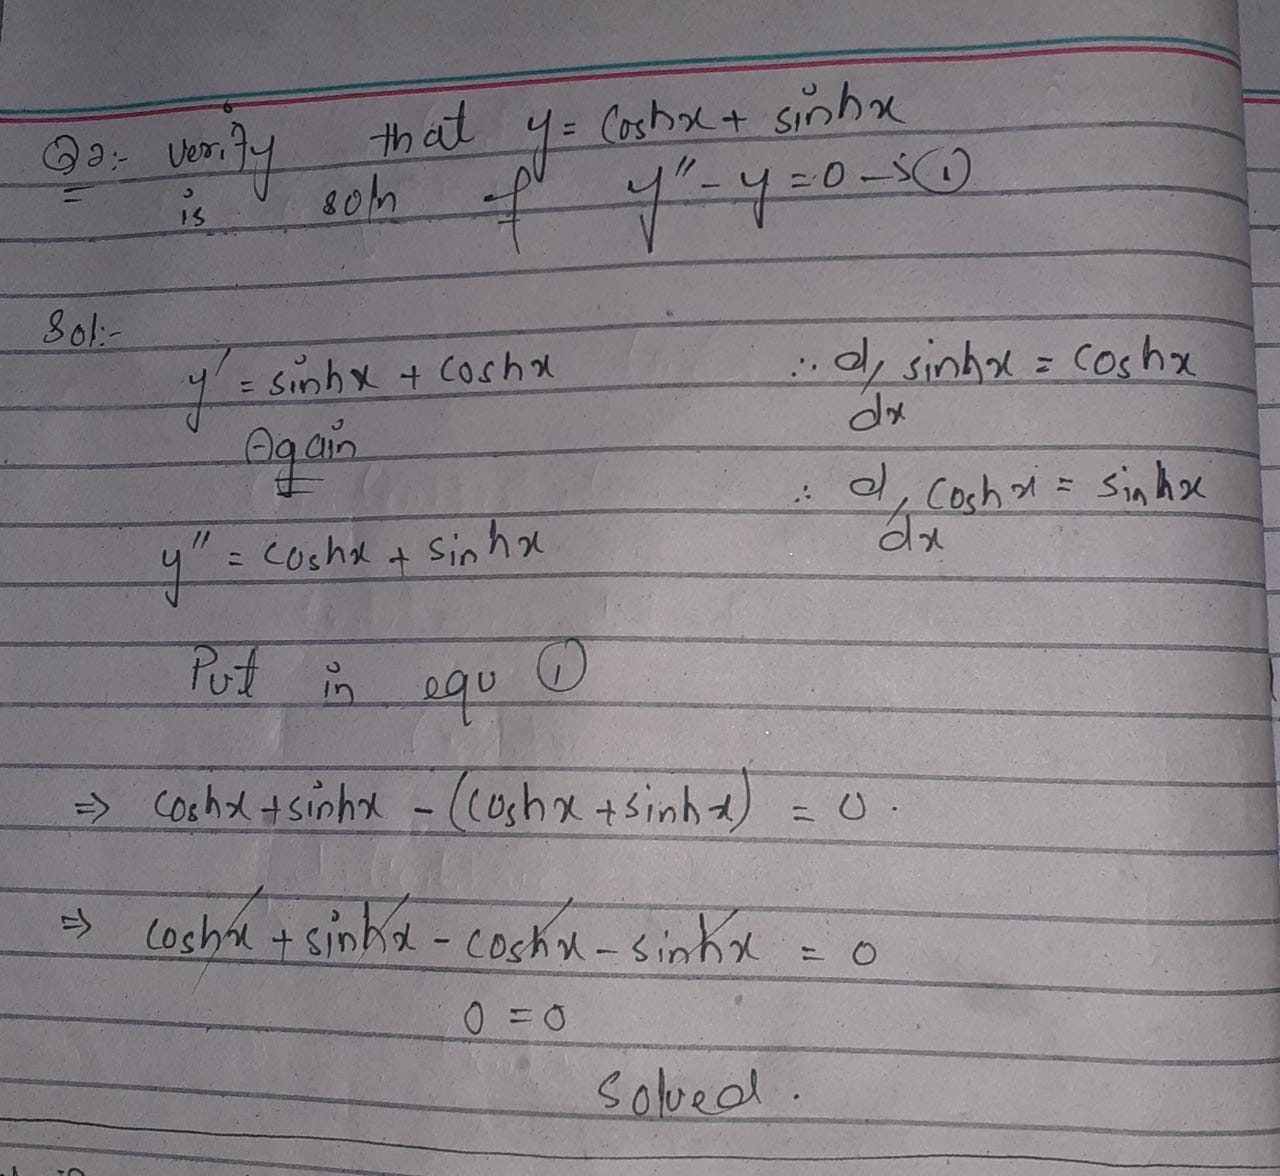 Q2:- verify that y = coshx + sinhx
is soln of y'' - y = 0 → ①
Sol:-
y' = sinhx + coshx ∴ d/dx sinhx = coshx
Again
∴ d/dx coshx = sinhx
y'' = coshx + sinhx
Put in equ ①
⇒ coshx + sinhx - (coshx + sinhx) = 0.
⇒ coshx + sinhx - coshx - sinhx = 0
0 = 0
Solved.